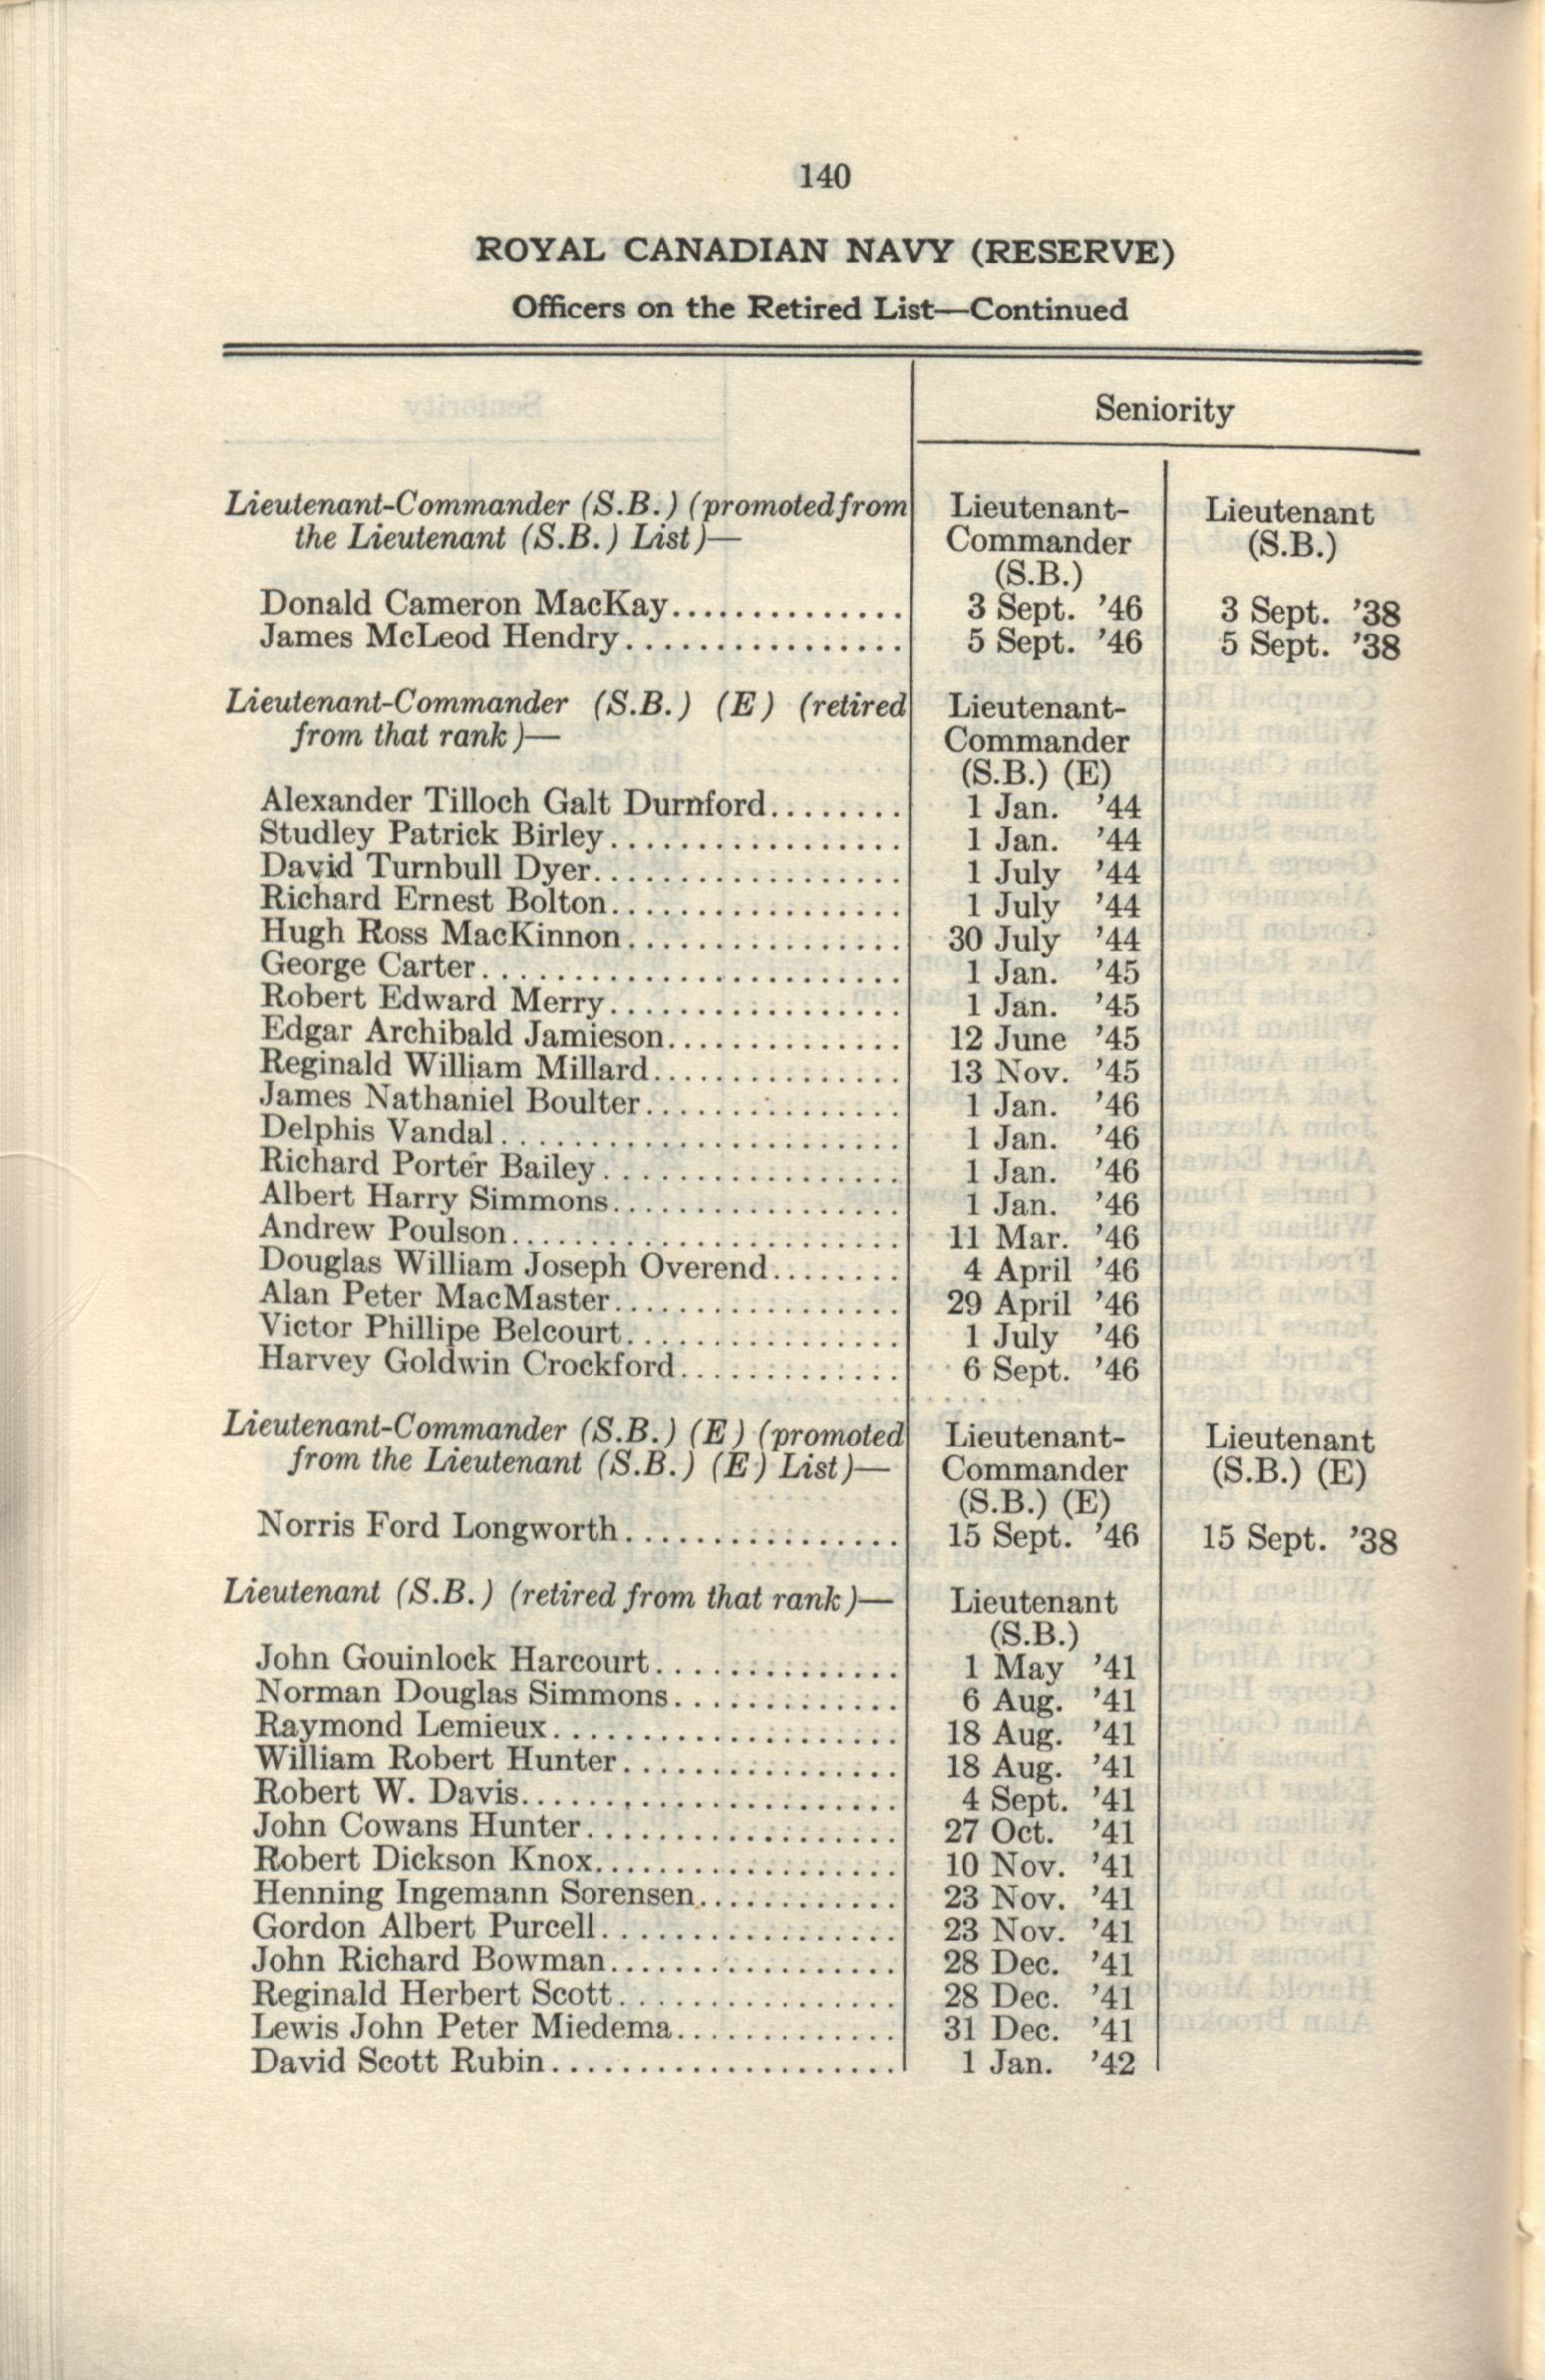 140
ROYAL CANADIAN NAVY (RESERVE)
Officers on the Retired List—Continued
Seniority
Lieutenant-Commander (S.B.) (promoted from the Lieutenant (S.B.) List)— Lieutenant-Commander (S.B.) Lieutenant (S.B.)
Donald Cameron MacKay.............. 3 Sept. ’46 3 Sept. ’38
James McLeod Hendry................ 5 Sept. ’46 5 Sept. ’38
Lieutenant-Commander (S.B.) (E) (retired from that rank)— Lieutenant-Commander (S.B.) (E)
Alexander Tilloch Galt Durnford........ 1 Jan. ’44
Studley Patrick Birley................. 1 Jan. ’44
David Turnbull Dyer.................. 1 July ’44
Richard Ernest Bolton................. 1 July ’44
Hugh Ross MacKinnon................ 30 July ’44
George Carter........................ 1 Jan. ’45
Robert Edward Merry................. 1 Jan. ’45
Edgar Archibald Jamieson.............. 12 June ’45
Reginald William Millard............... 13 Nov. ’45
James Nathaniel Boulter............... 1 Jan. ’46
Delphis Vandal....................... 1 Jan. ’46
Richard Porter Bailey.................. 1 Jan. ’46
Albert Harry Simmons................. 1 Jan. ’46
Andrew Poulson....................... 11 Mar. ’46
Douglas William Joseph Overend........ 4 April ’46
Alan Peter MacMaster................. 29 April ’46
Victor Phillipe Belcourt................ 1 July ’46
Harvey Goldwin Crockford............. 6 Sept. ’46
Lieutenant-Commander (S.B.) (E) (promoted from the Lieutenant (S.B.) (E) List)— Lieutenant-Commander (S.B.) (E) Lieutenant (S.B.) (E)
Norris Ford Longworth................ 15 Sept. ’46 15 Sept. ’38
Lieutenant (S.B.) (retired from that rank)— Lieutenant (S.B.)
John Gouinlock Harcourt.............. 1 May ’41
Norman Douglas Simmons............. 6 Aug. ’41
Raymond Lemieux.................... 18 Aug. ’41
William Robert Hunter................ 18 Aug. ’41
Robert W. Davis...................... 4 Sept. ’41
John Cowans Hunter.................. 27 Oct. ’41
Robert Dickson Knox.................. 10 Nov. ’41
Henning Ingemann Sorensen............ 23 Nov. ’41
Gordon Albert Purcell................. 23 Nov. ’41
John Richard Bowman................. 28 Dec. ’41
Reginald Herbert Scott................ 28 Dec. ’41
Lewis John Peter Miedema............. 31 Dec. ’41
David Scott Rubin.................... 1 Jan. ’42